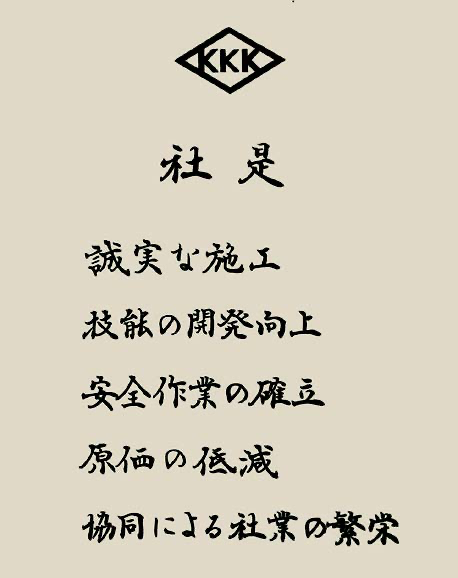 KKK
社是
誠実な施工
技能の開発向上
安全作業の確立
原価の低減
協同による社業の繁栄